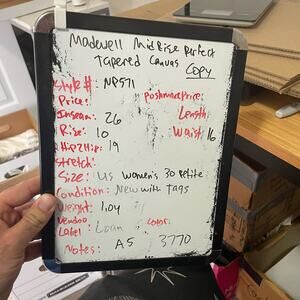 Madewell MidRise Perfect
Tapered Canvas
Copy
Style #: NP571
Price: Poshmark Price:
Inseam: 26 Length:
Rise: 10 Waist: 16
Hip2Hip: 19
Stretch:
Size: US Women's 30 Petite
Condition: New with Tags
Weight: 1.04
Vendoo
Label: Loan Color:
Notes: A5 3770